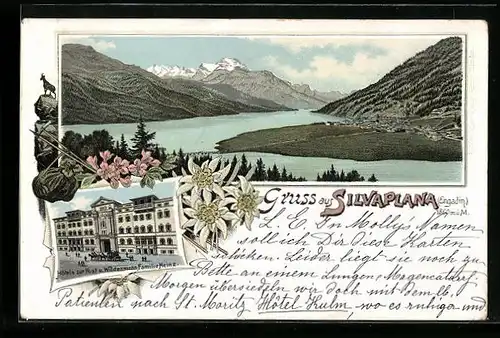 Gruss aus SILVAPLANA (Engadin)
Hôtels zur Post u. Wildenmann Familie Heinz
L. E. In Molly's Namen
soll ich Dir diese Karten
schicken. Leider liegt sie noch zu
Bette an einem Lungen, Magencatarrh.
Morgen übersiedeln wir doch mit dem lb.
Patienten nach St. Moritz, Hôtel Kulm, wo es ruhiger und